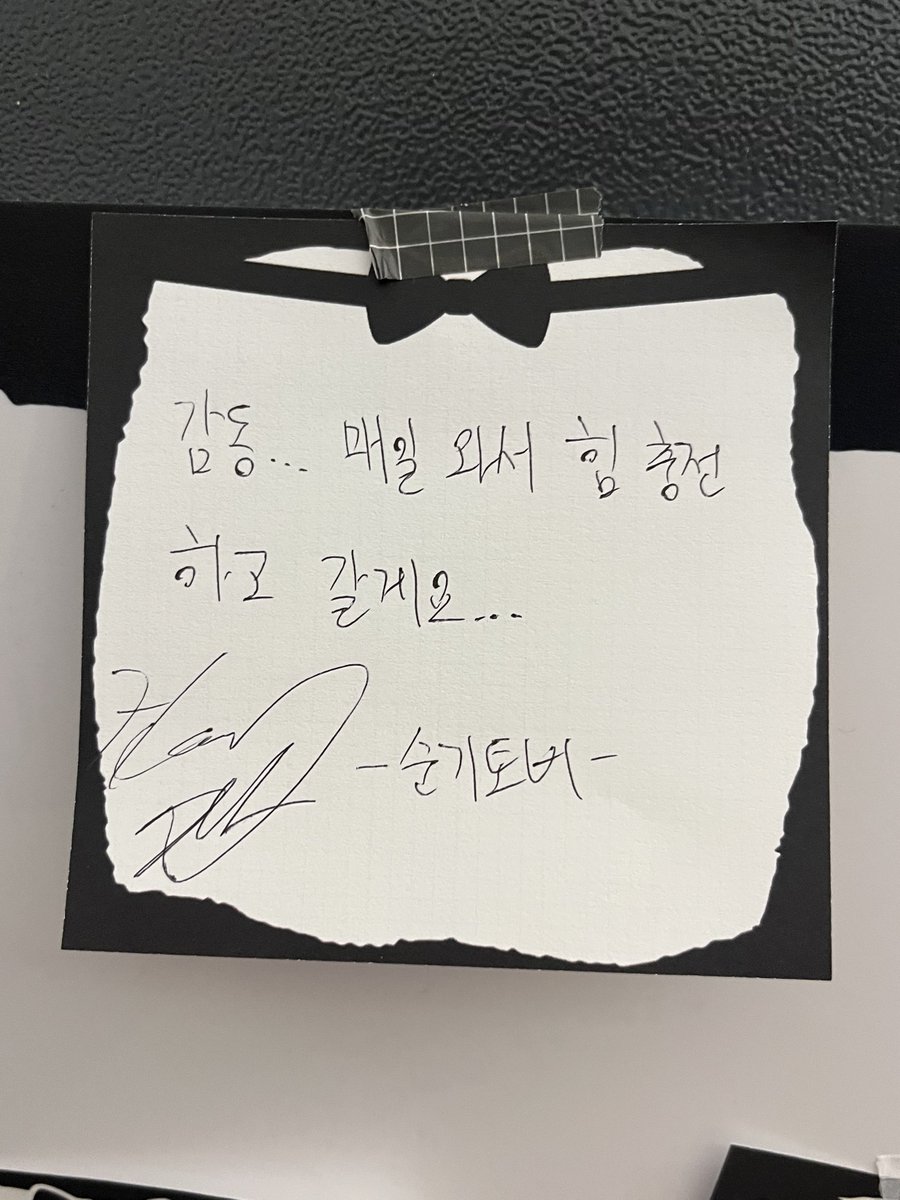 감동... 매일 와서 힘 충전
하고 갈게요...
-순기토버-